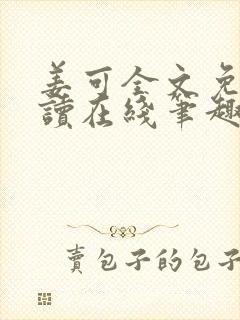 姜可全文免
讀在綫筆趣
賣包子的包子